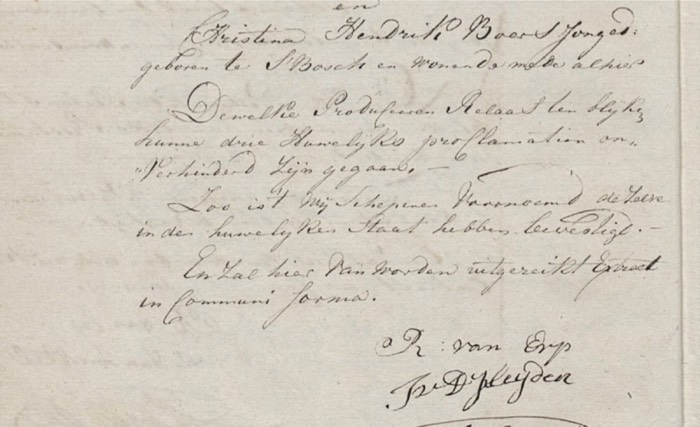 en
Christina Hendrik Boers Jonged:
geboren te S'Bosch en wonende mede alhier
Dewelke Produceeren Relaas ten blyke
hunne drie Huwelijks proclamatien on„
„Verhinderd zijn gegaan. —
Zoo ist Wij Schepenen Voornoemd de zelve
in den huwelyken Staat hebben bevestigd. —
En zal hier van worden uitgereikt Extract
in Communi forma.
R: van Erp